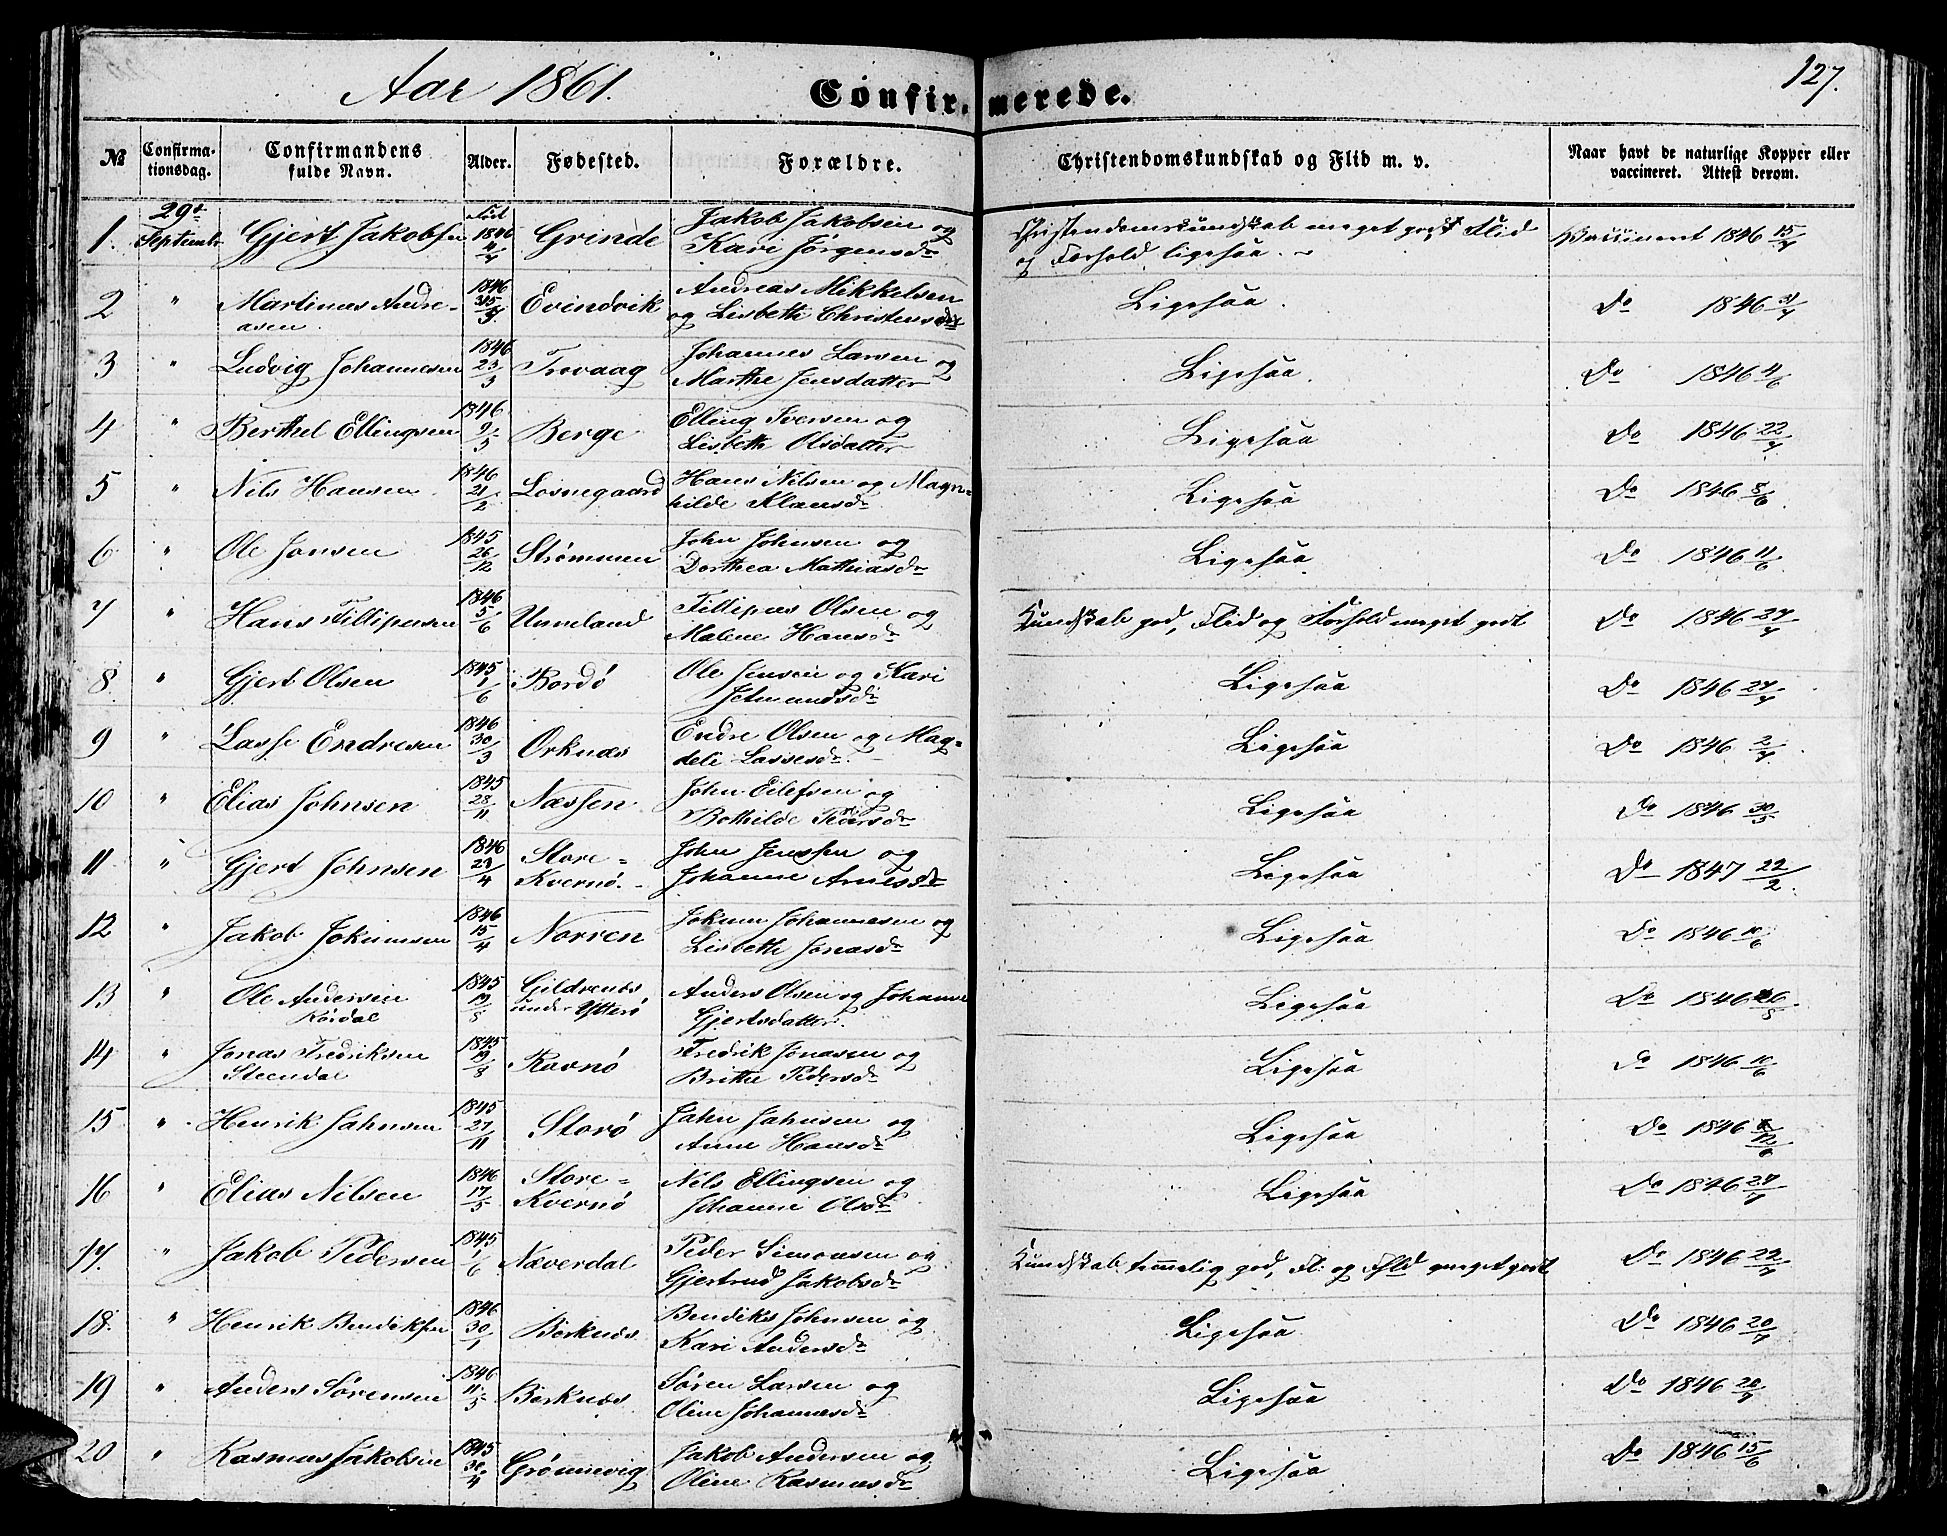 Aar 1861. Confirmerede. 127.
№ Confirmationsdag. Confirmandens fulde Navn. Alder. Fødested. Forældre. Christendomskundskab og Flid m. v. Naar havt de naturlige Kopper eller vaccineret. Attest derom.
1. 29de Septembr Gjert Jakobsen Født 1846 4/4 Grinde Jakob Jakobsen og Kari Jørgensdr Christendomskundskab meget godt Flid og Forhold ligesaa. Vaccineret 1846 15/7
2 " Martinus Andreasen 1846 Evindvik Andreas Mikkelsen og Lisbeth Christensdr Ligesaa. Do 1846
3 " Ludvig Johannesen 1846 23/3 Trovaag Johannes Larsen og Marthe Jensdatter Ligesaa. Do 1846 4/6
4 " Berthel Ellingsen 1846 9/5 Berge Elling Iversen og Lisbeth Olsdatter Ligesaa Do 1846 22/7
5 " Nils Hansen 1846 21/2 Losnegaard Hans Nilsen og Magnhilde Klausdr Ligesaa Do 1846 8/6
6 " Ole Jonsen 1845 26/12 Strømmen John Johnsen og Dorthea Mathiasdr Ligesaa Do 1846 11/6
7 " Hans Fillipusen 1846 5/6 Unneland Fillipus Olsen og Malene Hansdr Kundskab god, Flid og Forhold meget godt Do 1846 27/7
8. " Gjert Olsen 1845 1/6 Bordø Ole Jensen og Kari Jetmundsdr Ligesaa Do 1846 27/7
9 " Lasse Endresen 1846 30/3 Orknæs Endre Olsen og Magdeli Lassesdr Ligesaa Do 1846 2/7
10 " Elias Johnsen 1845 28/11 Næssen John Eilefsen og Bothilde Ligesaa Do 1846 30/5
11 " Gjert Johnsen 1846 23/4 Store=Kvernø. John Jenssen og Johanne Arnesdr Ligesaa Do 1847 22/2.
12 " Jakob Jokumsen 1846 15/4 Norren Jokum Johannesen og Lisbeth Jonasdr Ligesaa Do 1846 10/6
13 " Ole Andersen Kårdal 1845 19/8 Gildrenes under Ytterø Anders Olsen og Johanne Gjertsdatter. Ligesaa Do 1846
14 " Jonas Fredriksen Steendal 1845 19/8 Ravnø Fredrik Jonasen og Brithe Pedersdr Ligesaa Do 1846 10/6
15 " Henrik Johnsen 1845 27/11 Storø John Johnsen og Anne Hansdr Ligesaa Do 1846
16 " Elias Nilsen 1846 17/5 Store=Kvernø Nils Ellingsen og Johanne Olsdr Ligesaa Do 1846 27/7
17. " Jakob Pedersen 1845 1/6 Næverdal Peder Simonsen og Gjertrud Jakobsdr Kundskab temmelig god, Fl. og Fhld meget godt Do 1846 22/7
18. " Henrik Bendiksen 1846 30/1 Børknæs Bendiks Johnsen og Kari Andersdr Ligesaa Do 1846 20/7
19 " Anders Sørensen 1846 11/5 Børknæs Søren Larsen og Oline Johannesdr Ligesaa Do 1846 20/7
20 " Rasmus Jakobsen 1845 30/4 Grønnevig Jakob Andersen og Oline Rasmusdr Ligesaa Do 1846 15/6